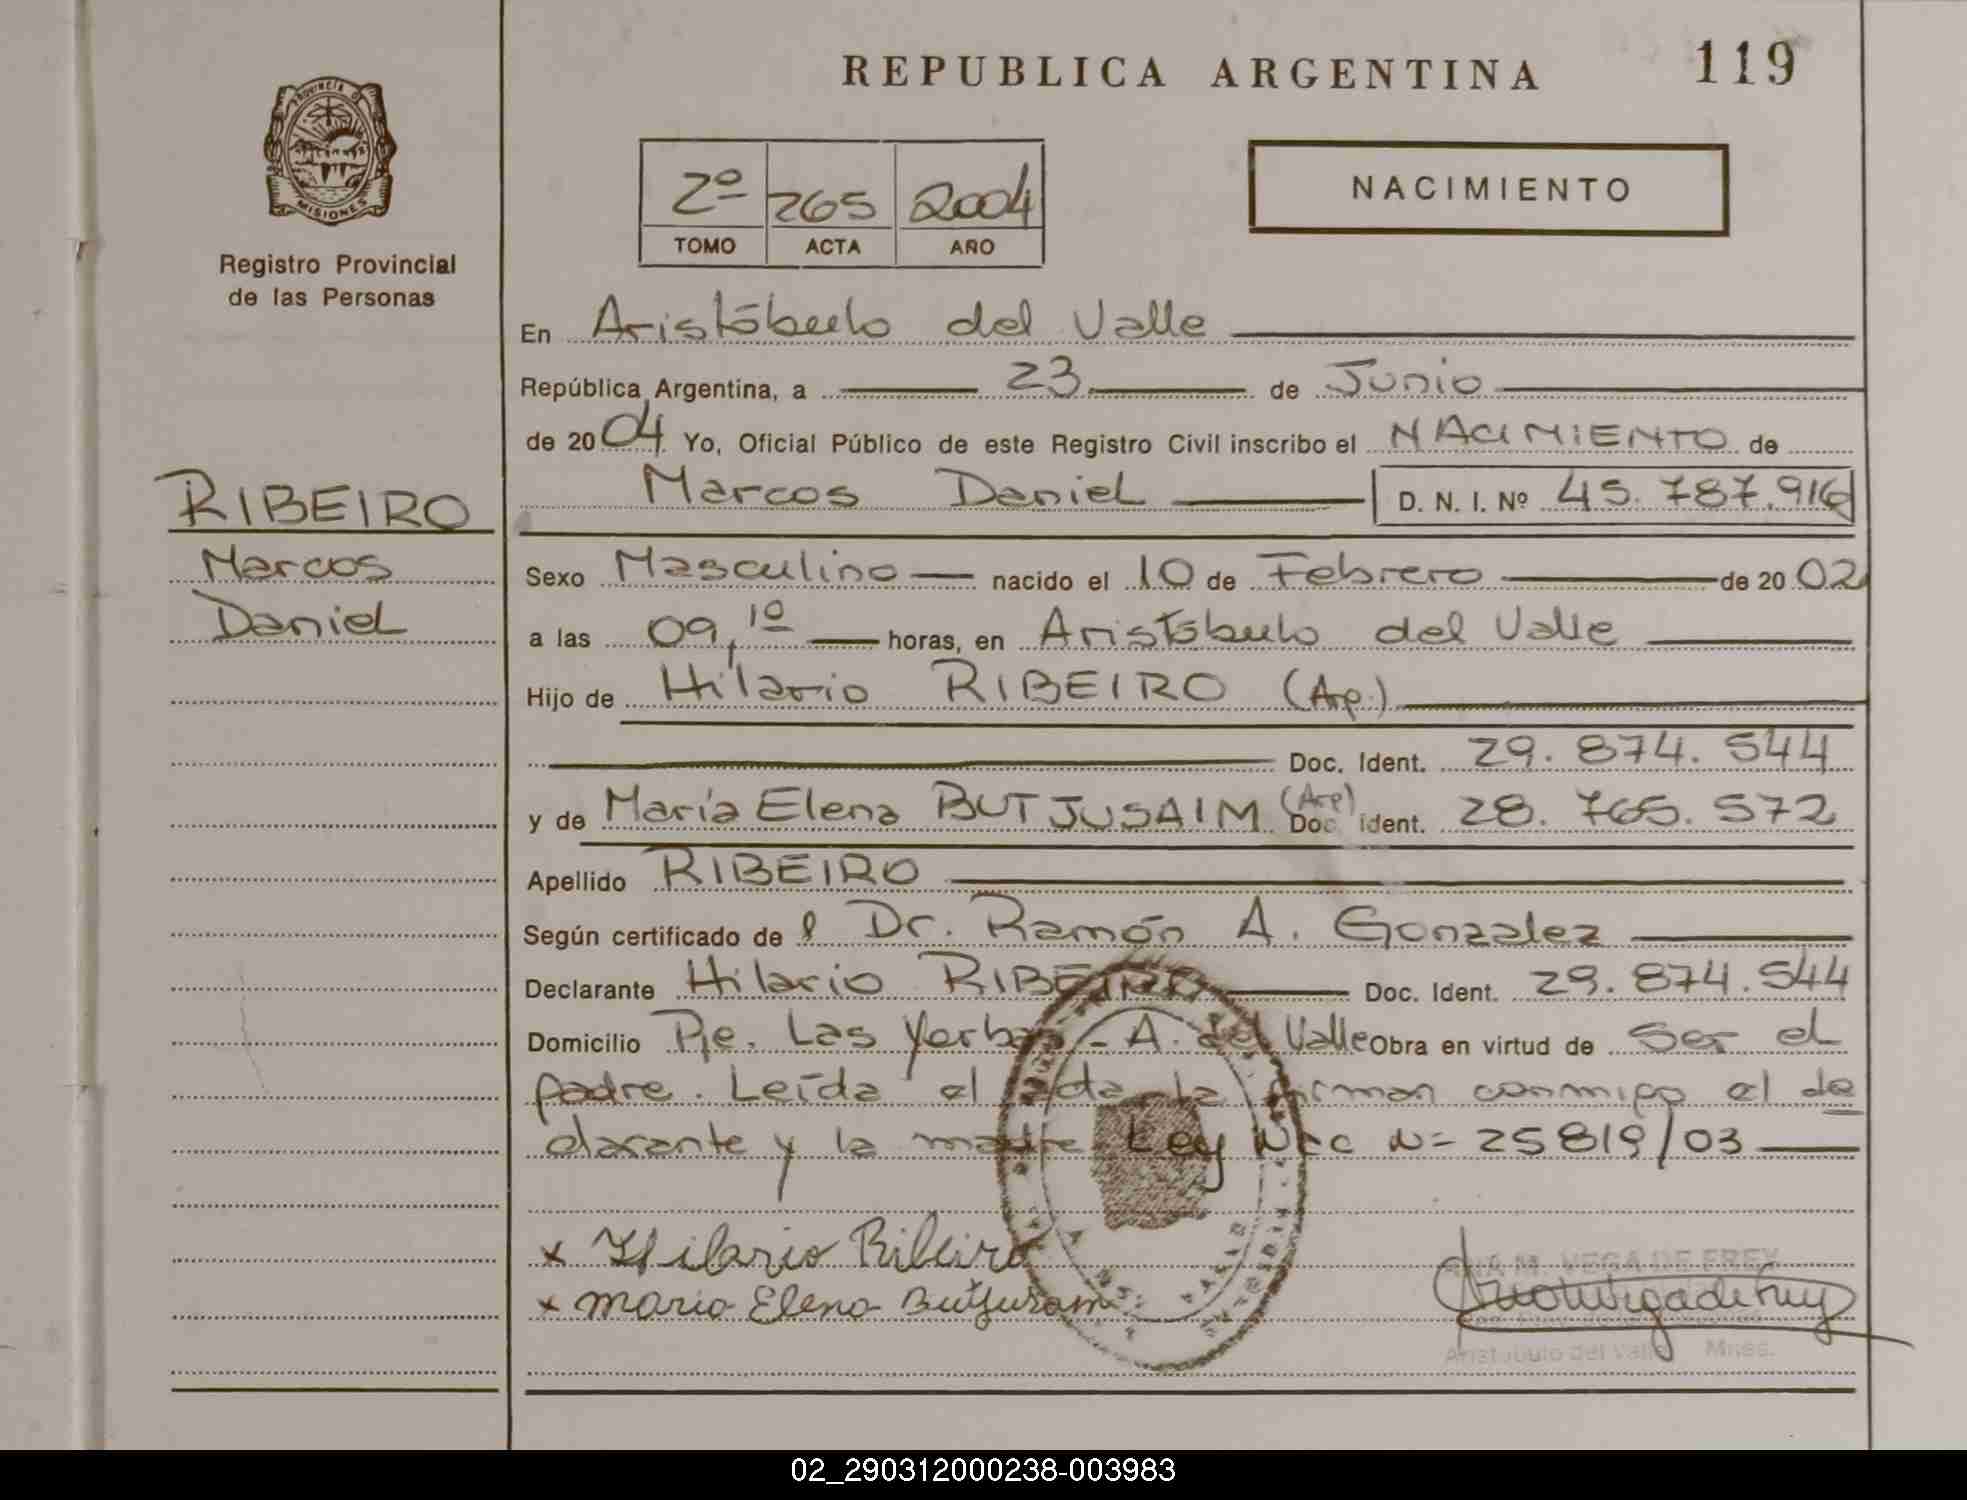 REPUBLICA ARGENTINA
119
PROVINCIA DE
MISIONES
Registro Provincial
de las Personas
2º 265 2004
TOMO ACTA AÑO
NACIMIENTO
En Aristóbulo del Valle
República Argentina, a 23 de Junio
de 2004 Yo, Oficial Público de este Registro Civil inscribo el NACIMIENTO de
Marcos Daniel D. N. I. Nº 45.787.916
RIBEIRO
Marcos
Daniel
Sexo Masculino nacido el 10 de Febrero de 2002
a las 09,10 horas, en Aristóbulo del Valle
Hijo de Hilario RIBEIRO (Arg.)
Doc. Ident. 29.874.544
y de María Elena BUTJUSAIM (Arg) Doc. ident. 28.765.572
Apellido RIBEIRO
Según certificado del Dr. Ramón A. Gonzalez
Declarante Hilario RIBEIRO Doc. Ident. 29.874.544
Domicilio Pje. Las Yerbas - A. del Valle Obra en virtud de ser el
padre. Leída el acta la firman conmigo el de
clarante y la madre Ley Nac N= 25819/03
x Hilario Ribeiro
x maria Elena
ANA M. VEGA DE FREY
Aristobulo del Valle Mnes.
02_290312000238-003983